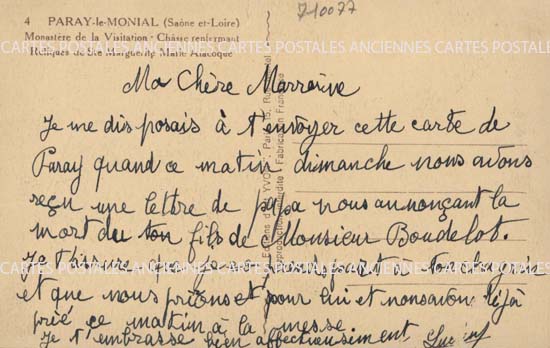 710077
4 PARAY-le-MONIAL (Saône et-Loire)
Monastère de la Visitation - Châsse renfermant
Reliques de Ste Marguerite Marie Alacoque
CARTES POSTALES ANCIENNES CARTES POSTALES ANCIENNES CARTES POSTALES
Ma Chère Marraine
Je me disposais à t'envoyer cette carte de
Paray quand ce matin dimanche nous avons
reçu une lettre de papa nous annonçant la
mort du ton fils de Monsieur Boudelot.
Je t'assure que je prends part à ton chagrin
et que nous prions et pour lui et nous avons déjà
prié ce matin à la messe
Je t'embrasse bien affectueusement
Editions d'Art YVON Paris
Reproduction interdite - Fabrication Française